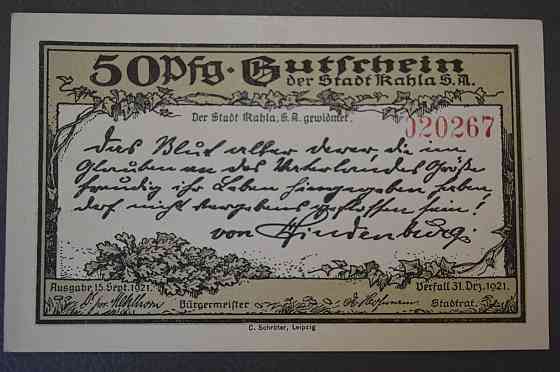 50 Pfg. Gutschein
der Stadt Kahla S.A.
Der Stadt Kahla, S.A. gewidmet.
020267
Das Blut aller derer, die im
Glauben an des Vaterlandes Größe
freudig ihr Leben hingegeben haben
darf nicht vergebens geflossen sein!
von Hindenburg.
Ausgabe 15. Sept. 1921.
Verfall 31. Dez. 1921.
Bürgermeister
Stadtrat.
C. Schröter, Leipzig